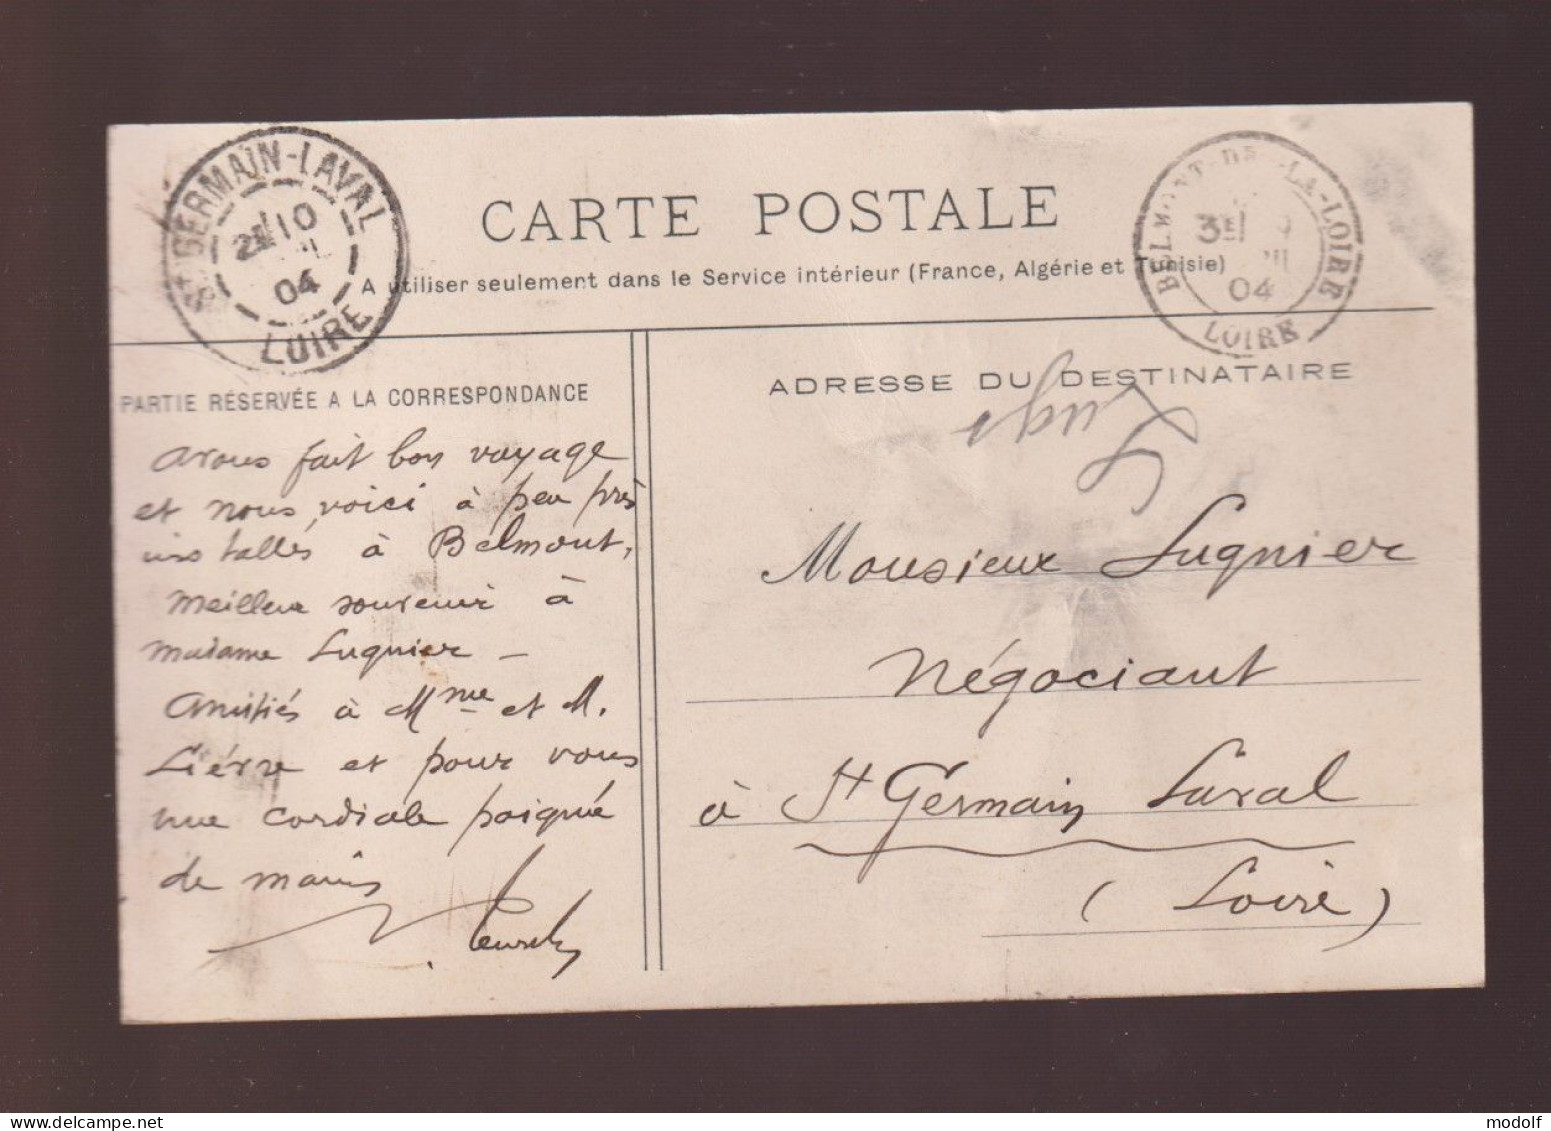 CARTE POSTALE
A utiliser seulement dans le Service intérieur (France, Algérie et Tunisie)
ST GERMAIN-LAVAL
2E 10
04
LOIRE
BELMONT-DE-LA-LOIRE
3E 9
04
LOIRE
PARTIE RÉSERVÉE A LA CORRESPONDANCE
avons fait bon voyage
et nous voici à peu près
installés à Belmont,
Meilleur souvenir à
Madame Lugnier –
Amitiés à Mme et M.
Lièvre et pour vous
une cordiale poignée
de mains
ADRESSE DU DESTINATAIRE
Monsieur Lugnier
Négociant
à St Germain Laval
(Loire)
modolf